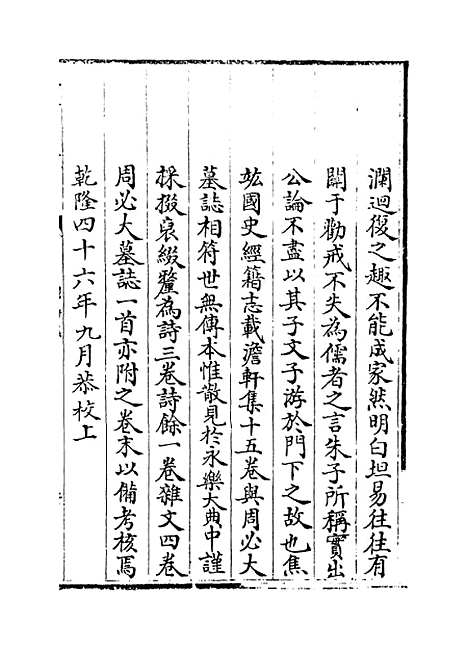 瀾迴復之趣不能成家然明白坦易往往有
闗于勸戒不失為儒者之言朱子所稱實出
公論不盡以其子文子游於門下之故也焦
竑國史經籍志載澹軒集十五卷與周必大
墓誌相符世無傳本惟散見於永樂大典中謹
採掇裒綴釐為詩三卷詩餘一卷雜文四卷
周必大墓誌一首亦附之卷末以備考核焉
乾隆四十六年九月恭校上